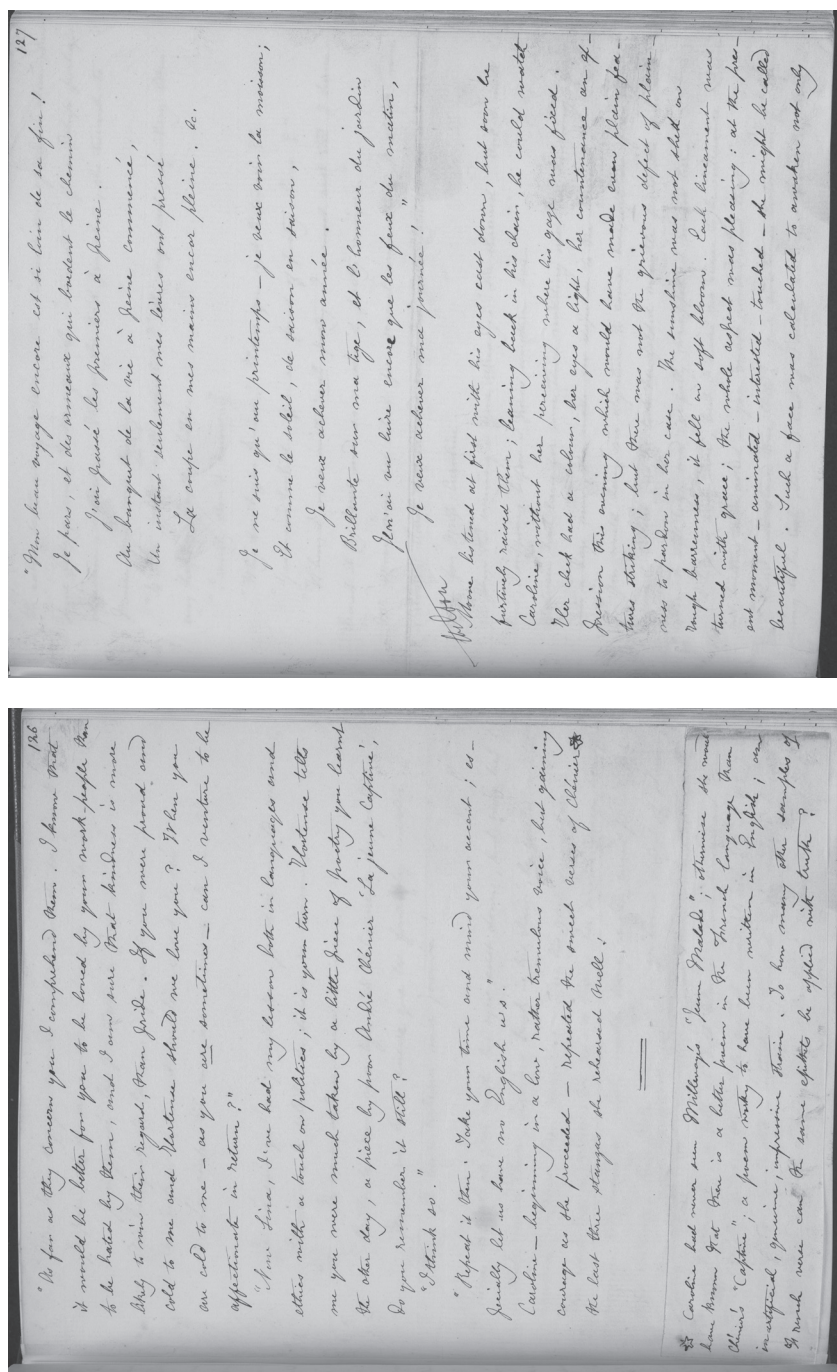 126
"As far as they concern you I comprehend them. I know that
it would be better for you to be loved by your work-people than
to be hated by them, and I am sure that kindness is more
likely to win their regard, than pride. If you were proud and
cold to me and Hortense should we love you? When you
are cold to me – as you are sometimes – can I venture to be
affectionate in return?"
"Now Lina, I've had my lesson both in languages and
ethics with a touch on politics; it is your turn. Hortense tells
me you were much taken by a little piece of poetry you learnt
the other day, a piece by poor André Chénier 'La jeune Captive',
do you remember it still?
"I think so."
"Repeat it then. Take your time and mind your accent; es-
pecially let us have no English u's."
Caroline – beginning in a low, rather tremulous voice, but gaining
courage as she proceeded – repeated the sweet verses of Chénier*
the last three stanzas she rehearsed well.
* Caroline had never seen Millevoye's "Jeune Malade"; otherwise she would
have known that there is a better poem in the French language than
Chénier's "Captive"; a poem worthy to have been written in English; an
inartificial, genuine, impressive strain. To how many other samples of
French verse can the same epithets be applied with truth?
127
"Mon beau voyage encore est si loin de sa fin!
Je pars, et des ormeaux qui bordent le chemin
J'ai passé les premiers à peine.
Au banquet de la vie à peine commencé,
Un instant seulement mes lèvres ont pressé
La coupe en mes mains encor pleine. &c.
Je ne suis qu'au printemps – je veux voir la moisson;
Et comme le soleil, de saison en saison,
Je veux achever mon année.
Brillante sur ma tige, et l'honneur du jardin
Je n'ai vu luire encore que les feux du matin,
Je veux achever ma journée!"
Moore listened at first with his eyes cast down, but soon he
furtively raised them; leaning back in his chair, he could watch
Caroline, without her perceiving where his gaze was fixed.
Her cheek had a colour, her eyes a light, her countenance an ex-
pression this evening which would have made even plain fea-
tures striking; but there was not the grievous defect of plain-
ness to pardon in her case. The sunshine was not shed on
rough barrenness, it fell on soft bloom. Each lineament was
turned with grace; the whole aspect was pleasing: at the pres-
ent moment – animated – interested – touched – she might be called
beautiful. Such a face was calculated to awaken not only